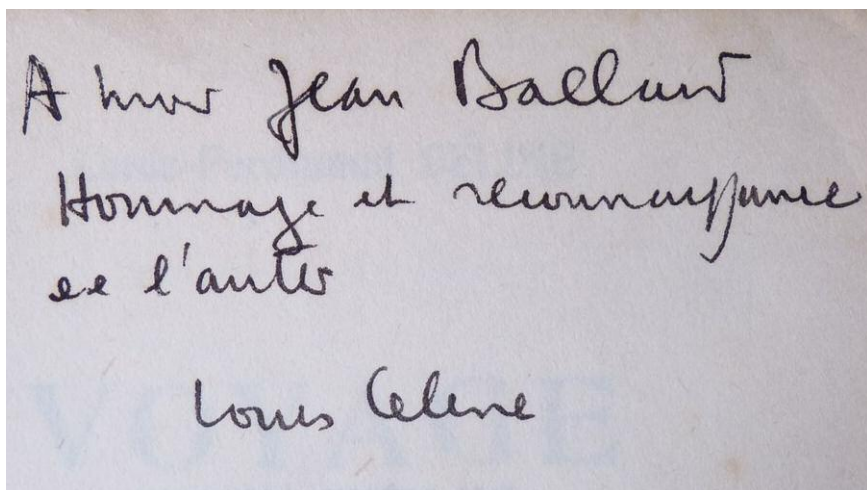 A Jean Ballard
Hommage et reconnaissance
de l'auteur
Louis Celine
VOYAGE